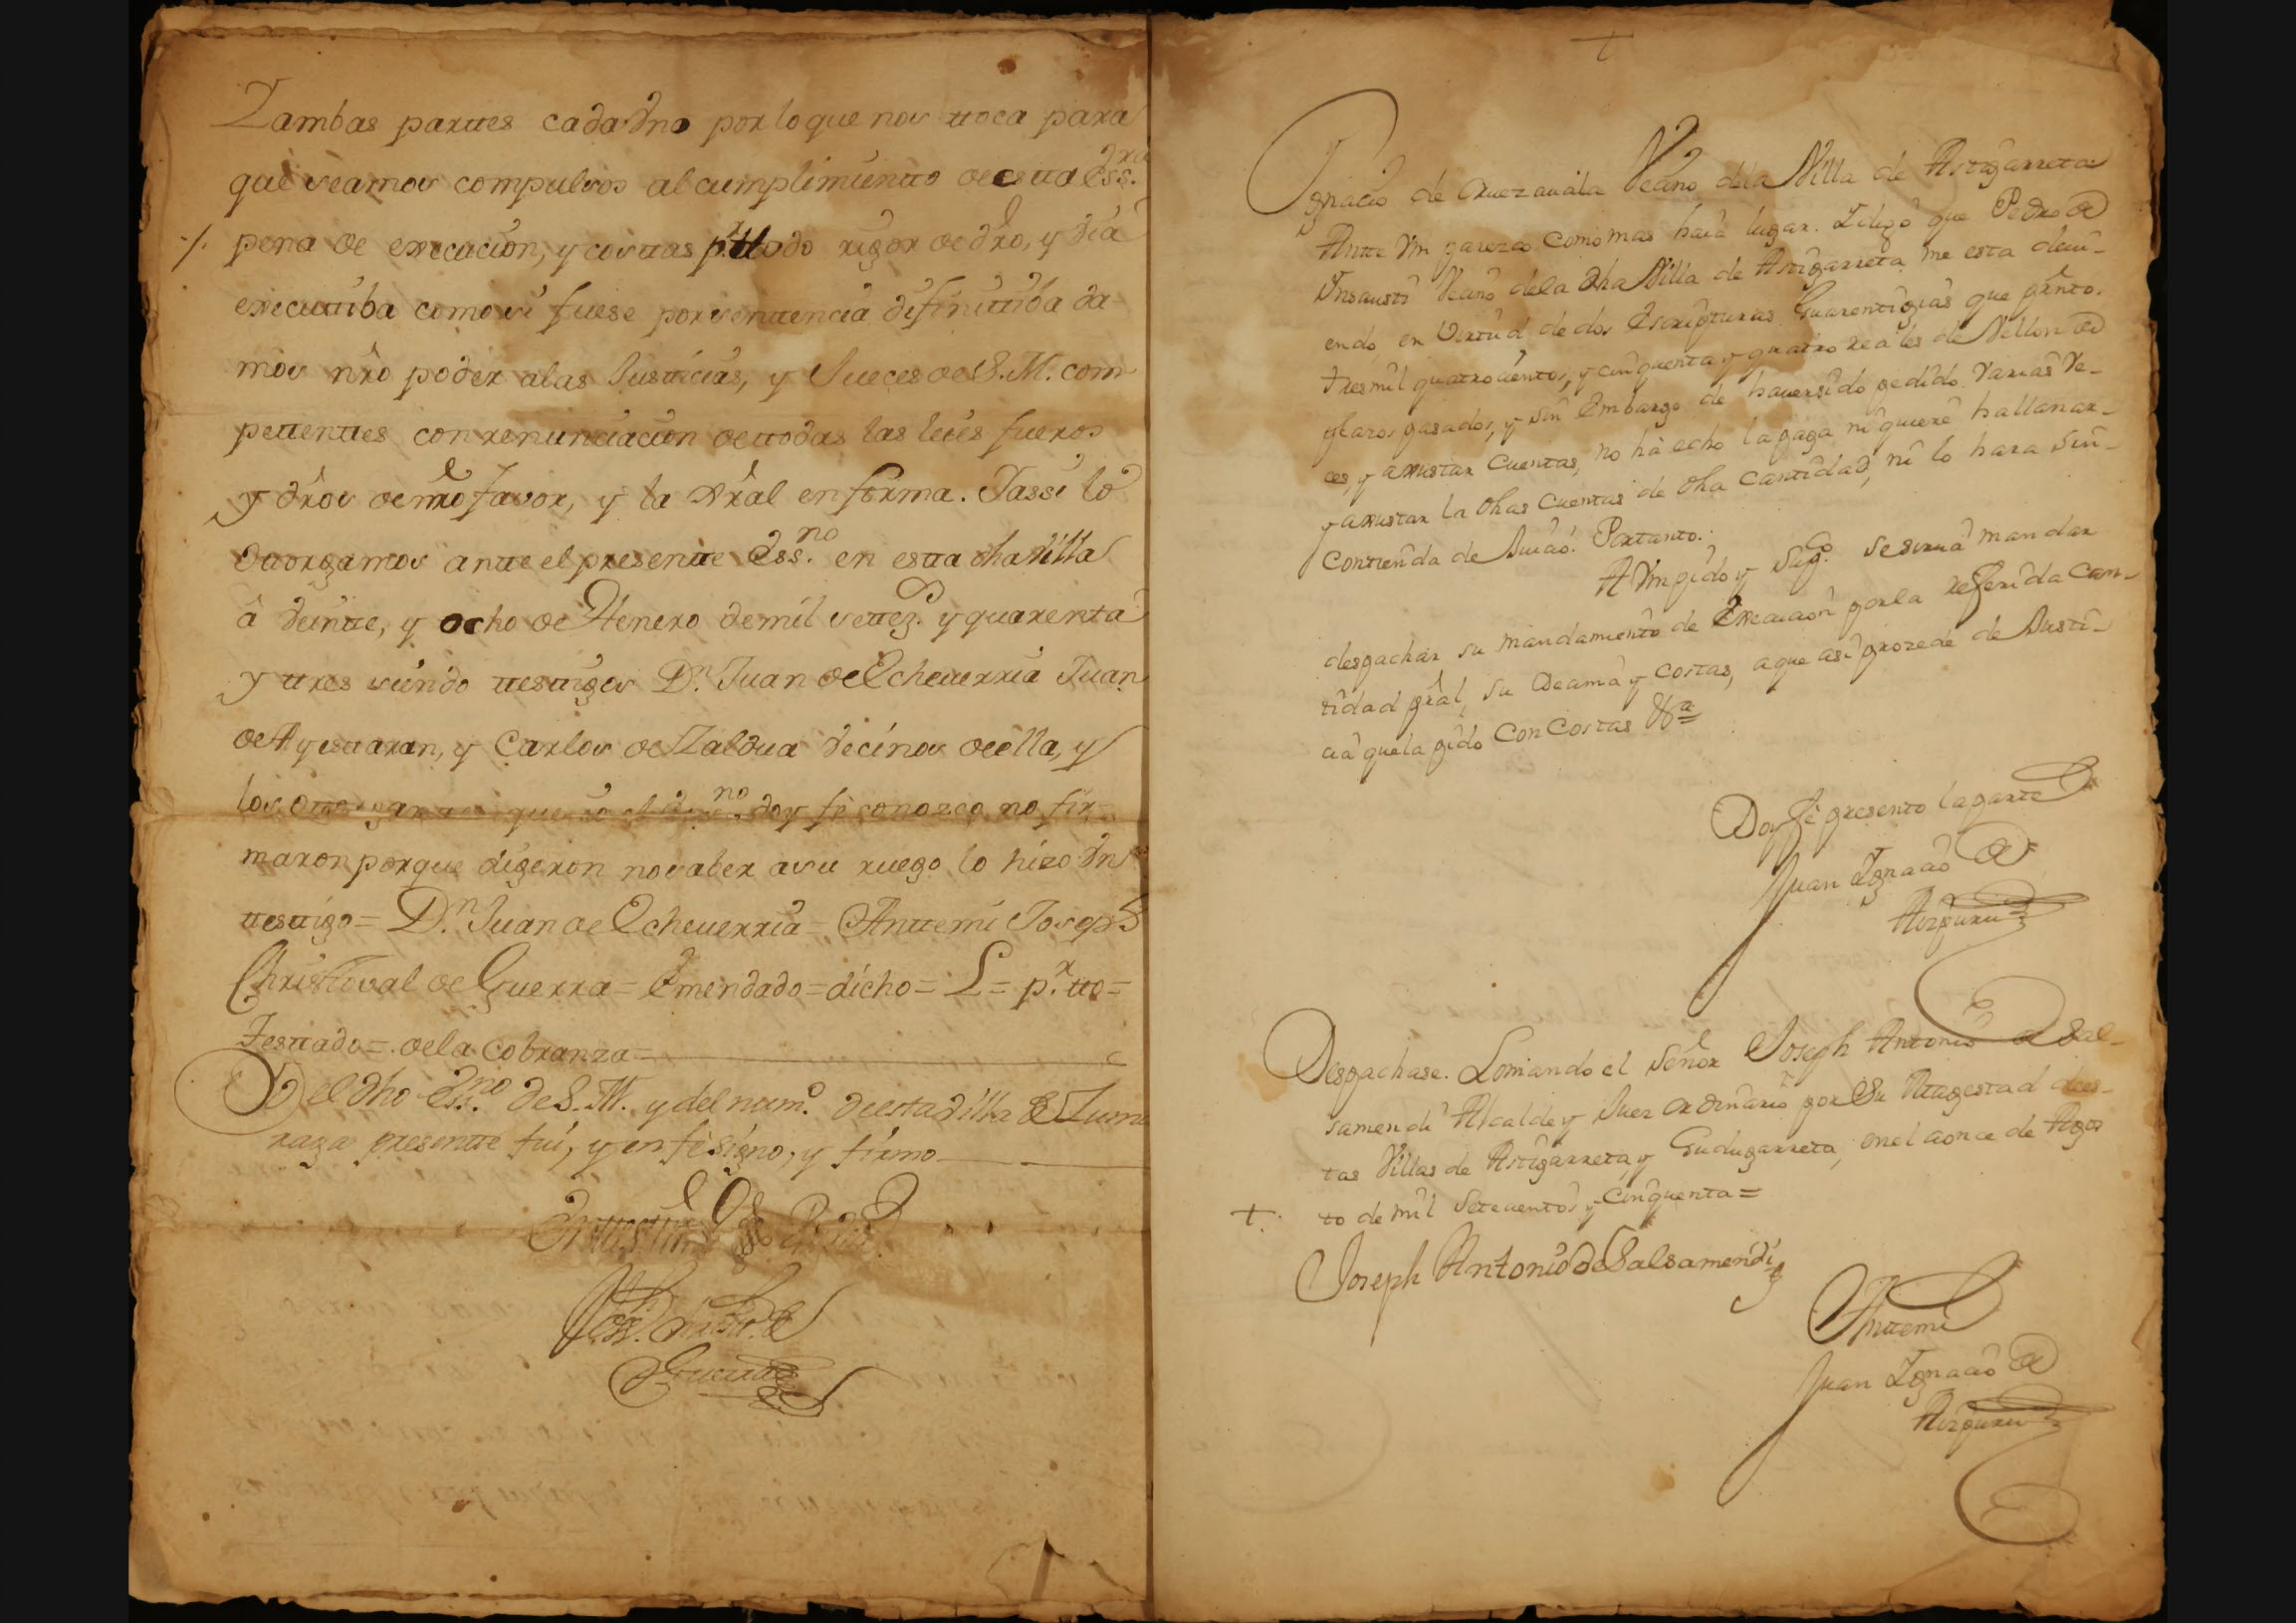 Yambas parttes cada Vno por lo que nos ttoca para
que seamos compulsos al cumplimientto de estta Ess.ra
./. pena de execucion, y costtas p.r ttodo rigor de dro, y via
executtiba como si fuese por senttencia difinittiba da
mos nro poder a las Justticias, y Jueces de S. M. com
pettenttes con renunciacion de ttodas las leies fueros
y dros de nro favor, y la Gral en forma. Yassi lo
ottorgamos antte el presentte Ess.no en estta dha Villa
â veintte, y ocho de Henero de mil settez.s y quarenta
y ttres siendo ttesttigos D.n Juan de Echeuerria Juan
de Ayesttaran, y Carlos de Zaldua vecinos de ella, y
los ottorganttes que yo el Ess.no doy fé conozco no fir-
maron porque digeron no saber a su ruego lo hizo Vn
ttesttigo = D.n Juan de Echeuerria = Anttemi Joseph
Christtoval de Guerra = Emendado = dicho = L = p.r tto =
Testtado = de la cobranza =
Yo el dho Ess.no de S. M. y del num.o de esta Villa de Zuma
raga presentte fui, y en fe signo, y firmo
Guerra
+
Ignacio de Aruezauala Vecino dela Villa de Astigarreta
Ante Vm parezco como mas haia lugar. Y digo que Pedro de
Insausti Vecino dela dha Villa de Astigarreta me esta deui-
endo, en Virtud de dos Escripturas Guarentigias que presento.
tres mil quatrocientos, y cinquenta y quatro reales de Vellon de
plazos pasados, y sin Embargo de hauersido pedido Varias Ve-
ces, y axustar Cuentas, no hà echo la paga ni quiere hallanar-
y axustar la dhas Cuentas de dha Cantidad, ni lo hara sin-
contienda de Juicio. Portanto.
A Vm pido y Sup.co se sirua mandar
despachar su mandamiento de Execucion por la referida Can-
tidad pral, su Decima y costas, aque asi prozede de Justi-
cia que la pido con costas &a =
Doy fé presento la parte
Juan Ignacio de
Aizpuru
Despachase. Lo mando el Señor Joseph Antonio de Sal-
samendi Alcalde y Juez ordinario por Su Magestad de es-
tas Villas de Astigarreta, y Gudugarreta, en el a once de Agos
+. to de mil Setecientos y cinquenta =
Joseph Antonio de Salsamendi
Anttemi
Juan Ignacio de
Aizpuru